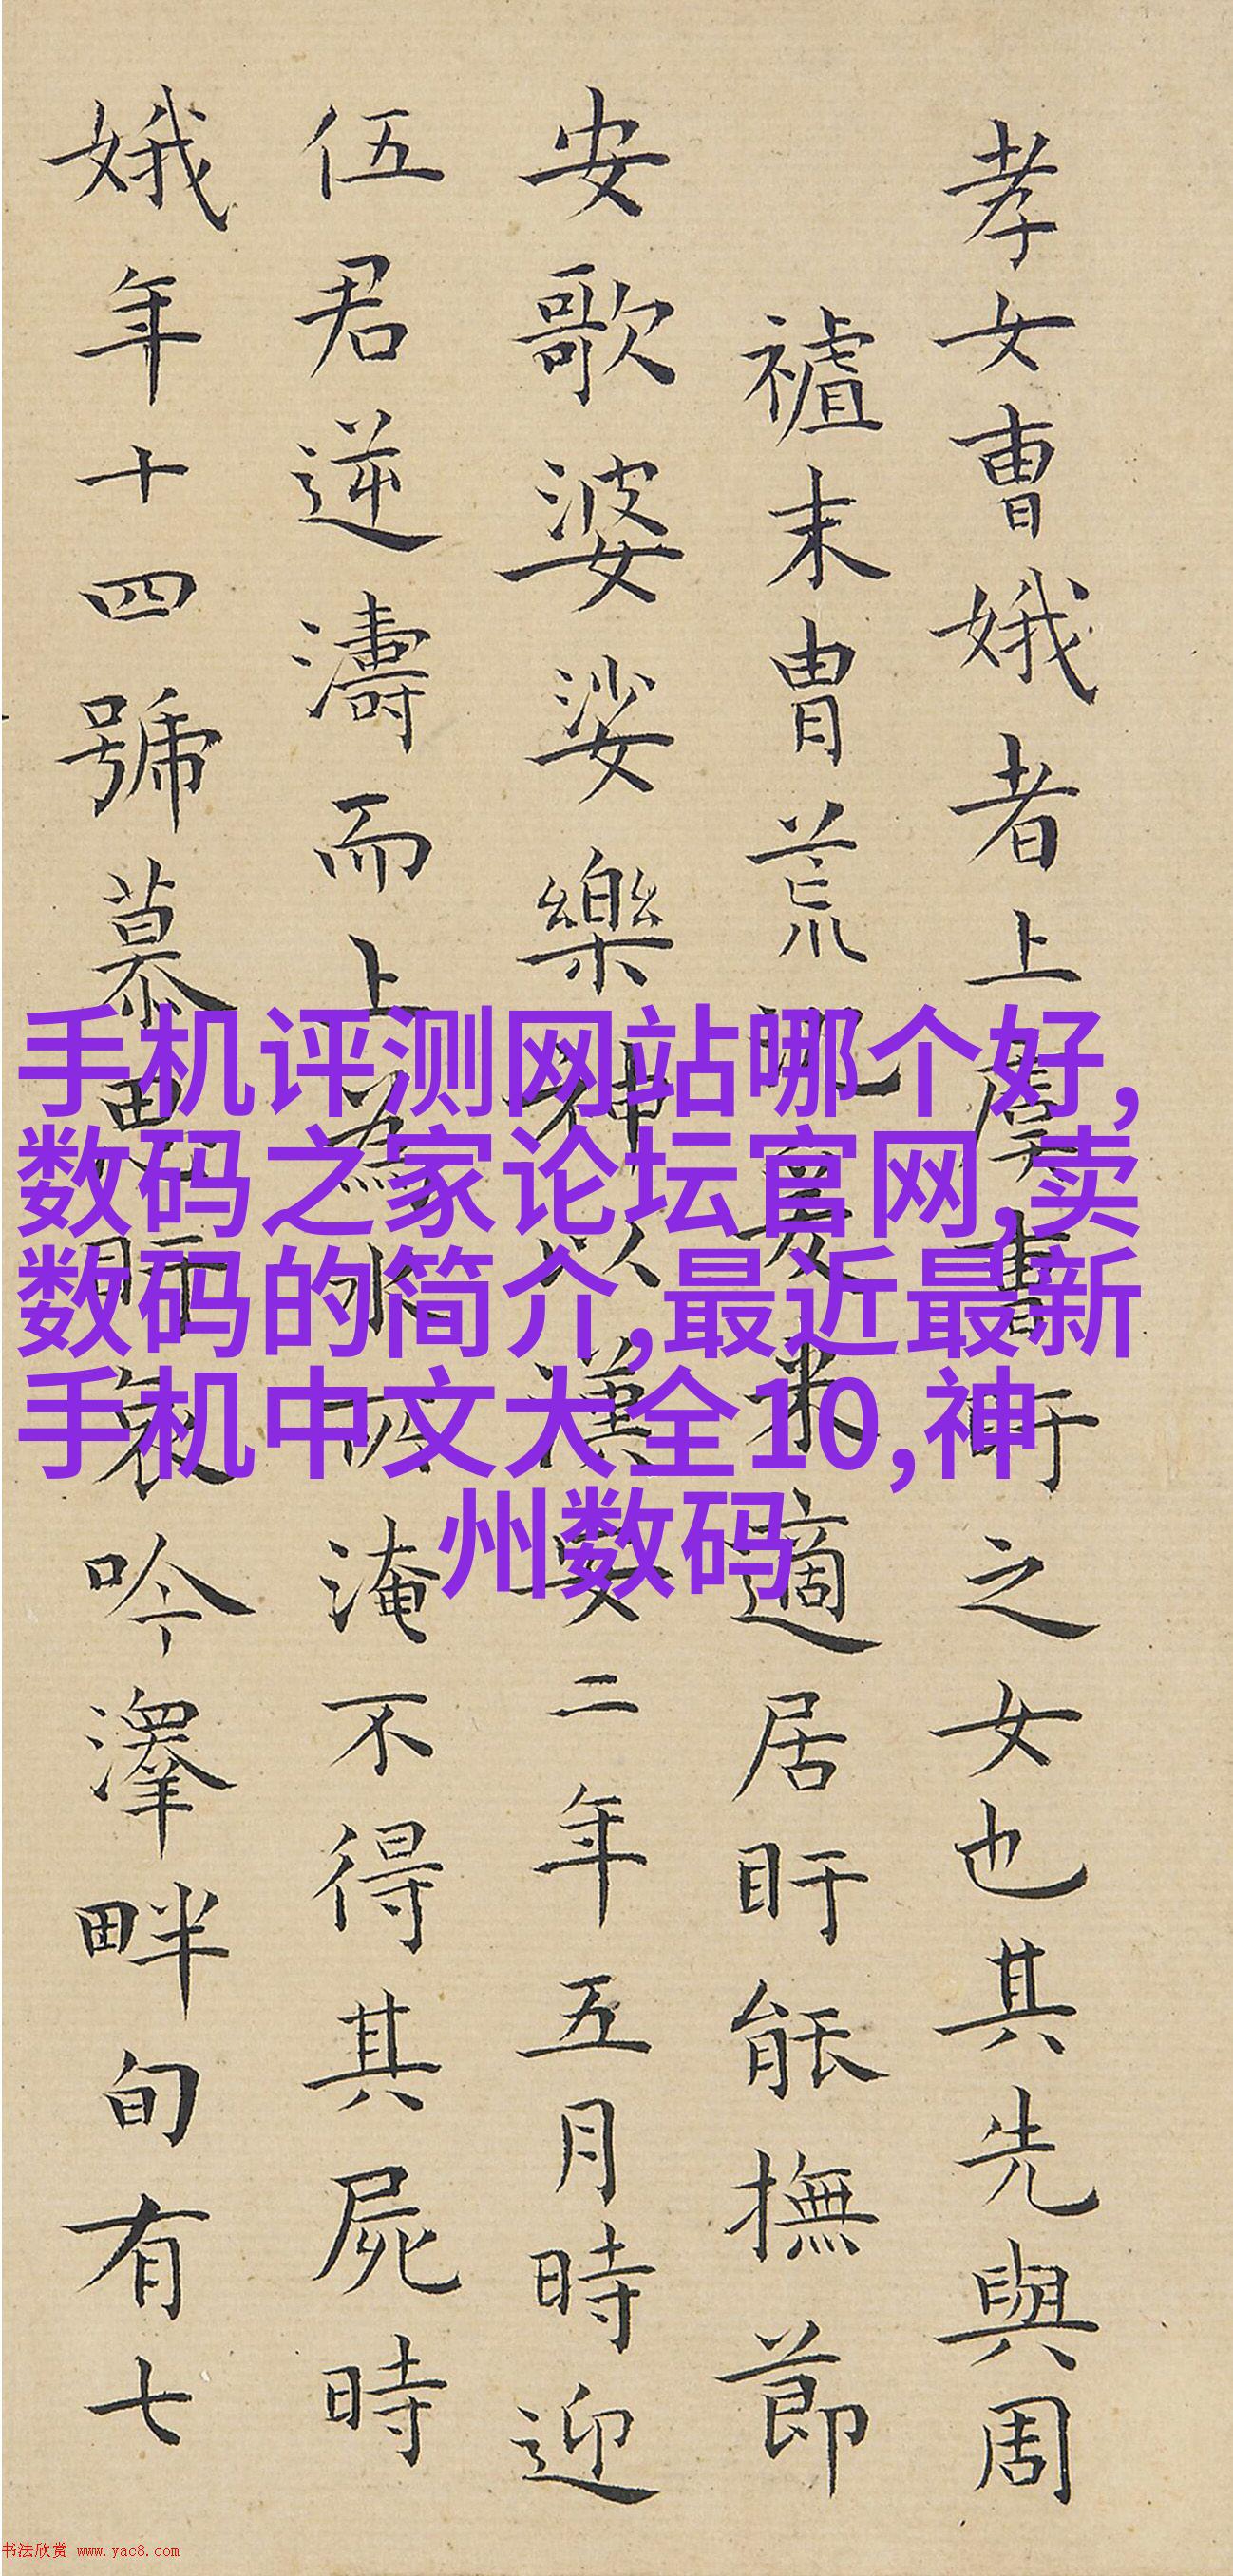 孝女曹娥者上虞曹盱之女也其先與周
末冑荒沉爰來適居盱能撫節
安歌婆娑樂神以漢安二年五月時迎
伍君逆濤而上為水所淹不得其屍時
娥年十四號慕思盱哀吟澤畔旬有七
手机评测网站哪个好,
数码之家论坛官网,卖
数码的简介,最近最新
手机中文大全10,神
州数码
书法欣赏 www.yac8.com